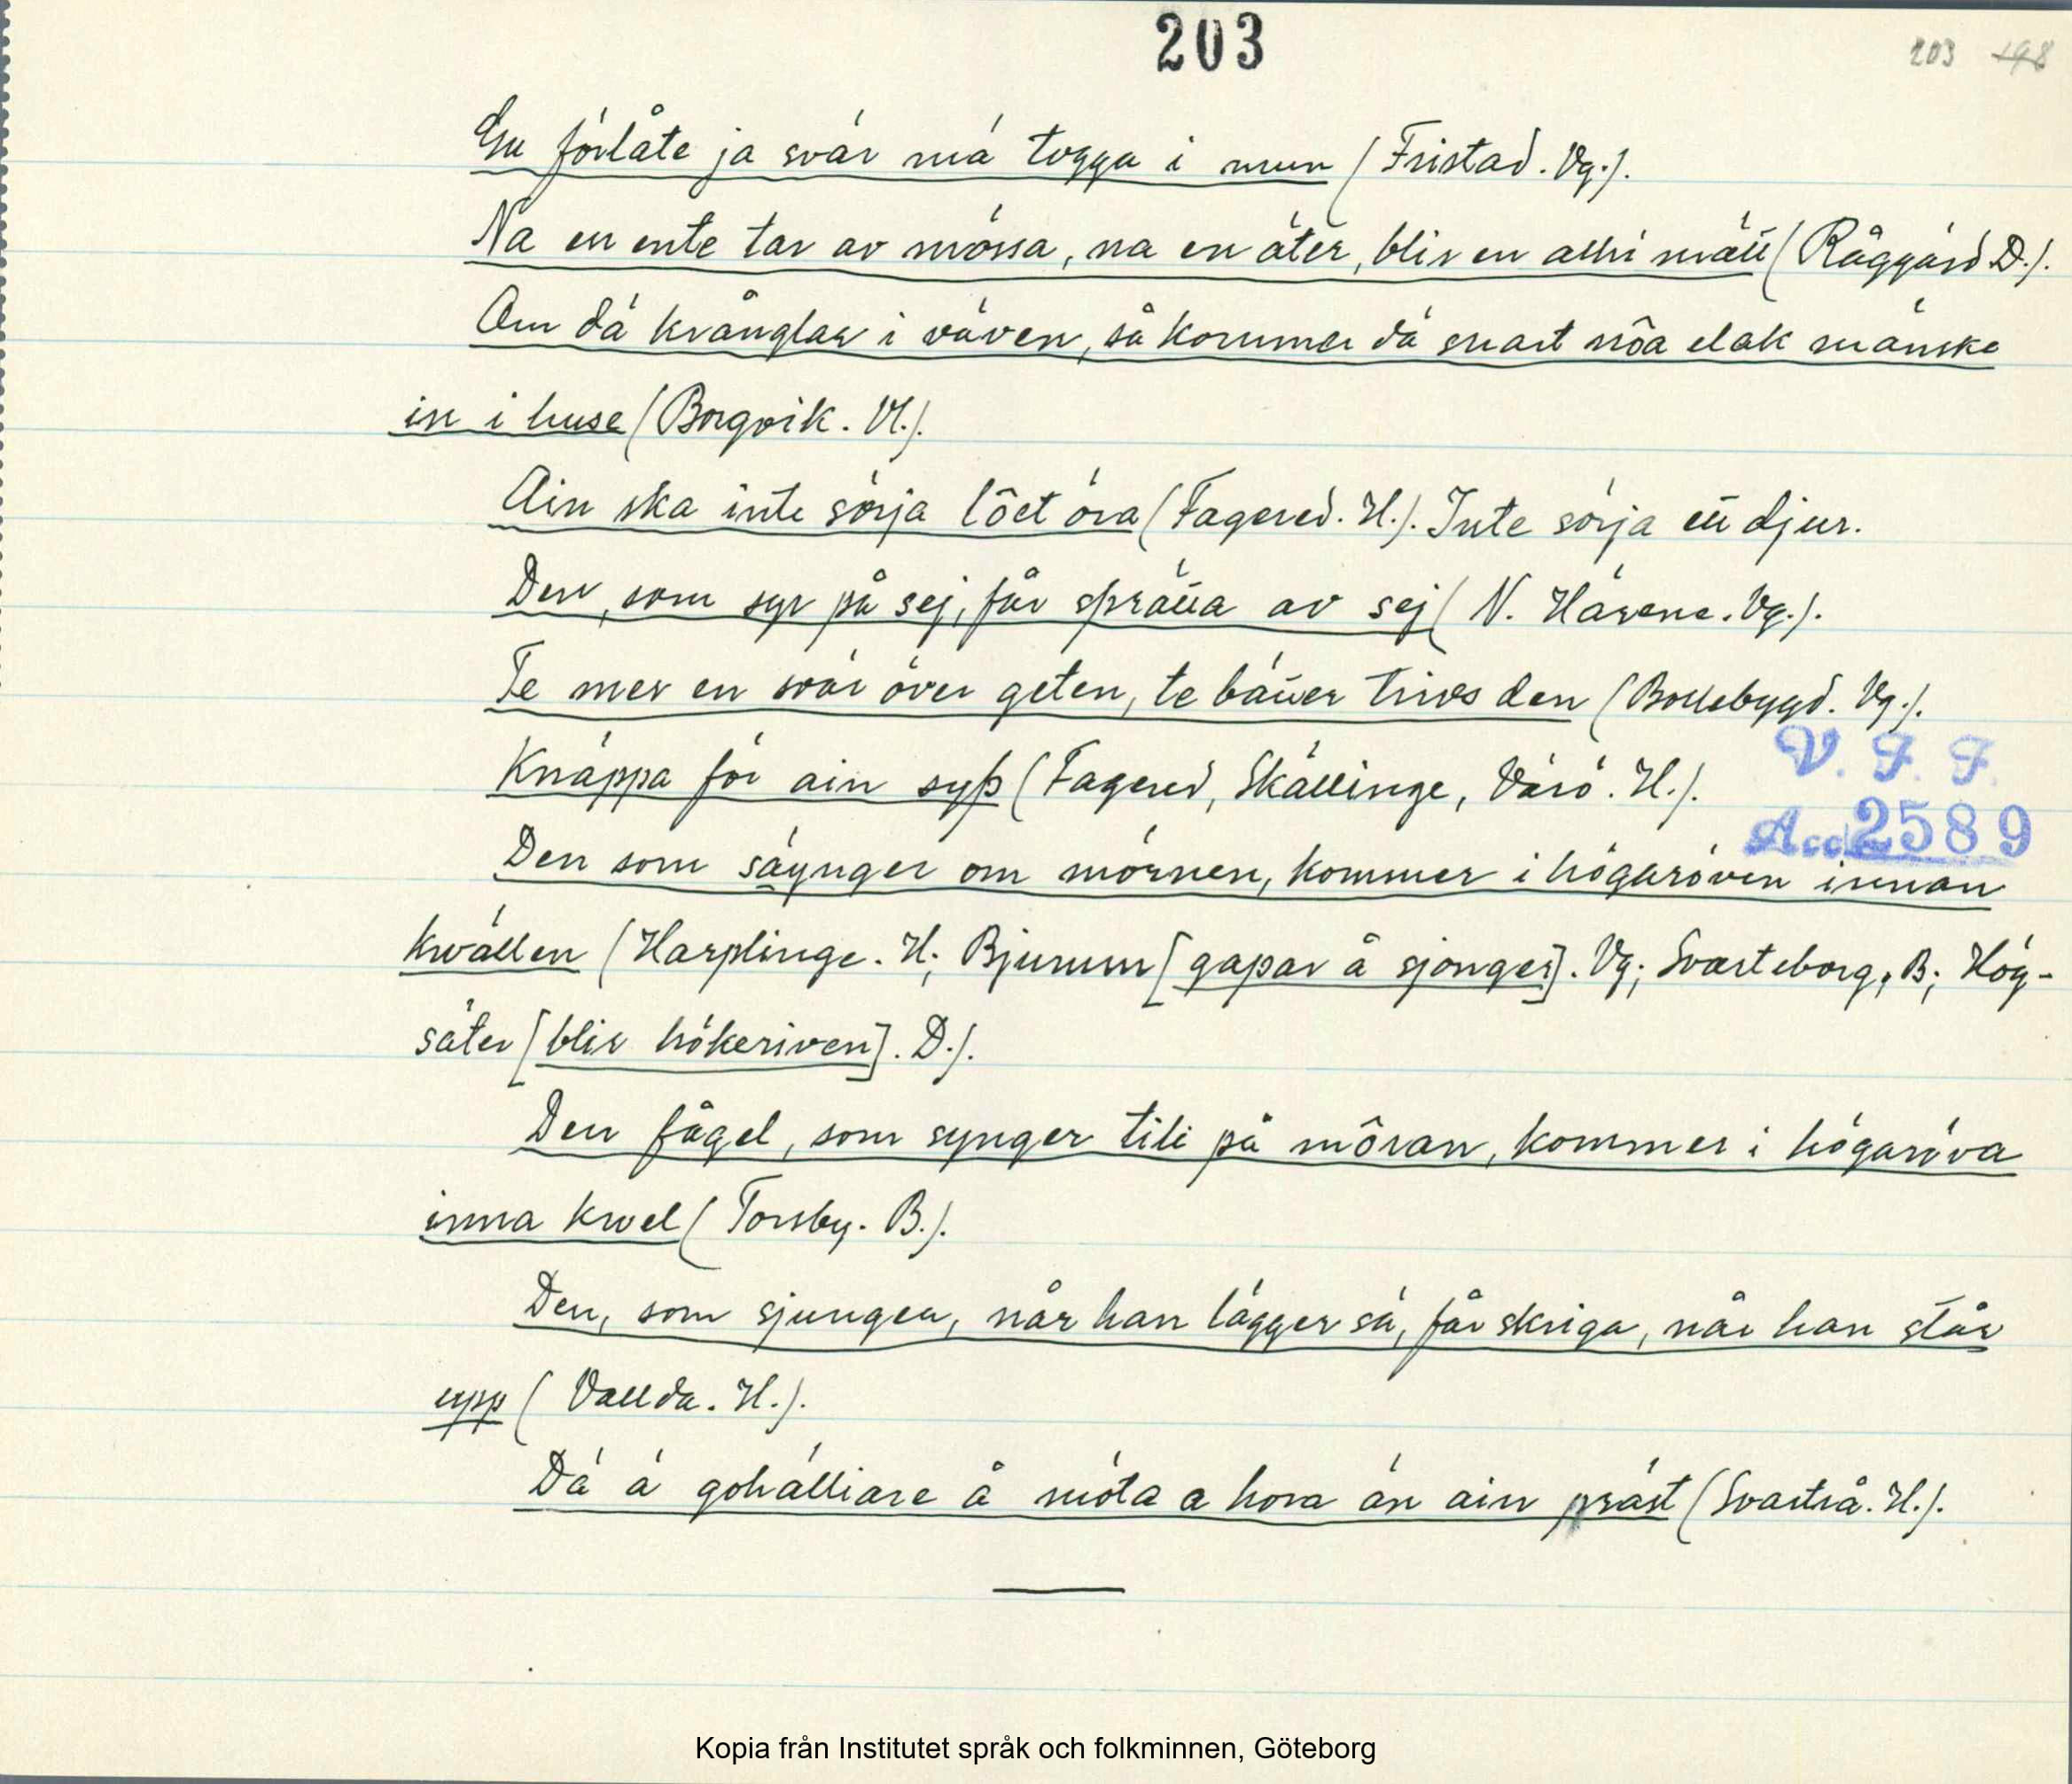 203
203 198
Gu förlåte ja svär mä togga i mun (Fristad. Vg.).
Na en ente tar av mössa, na en äter, blir en alhri mätt (Råggärd D.).
Om dä krånglar i väven, så kommer dä snart nôa elak mänske
in i huse (Borgvik. Vl.).
Ain ska inte sörja lôet öra (Fagered. H.). Inte sörja ett djur.
Den, som syr på sej, får sprätta av sej (N. Härene. Vg.).
Te mer en svär över geten, te bätter trivs den (Bollebygd. Vg.).
Knäppa för ain syp (Fagered, Skällinge, Värö. H.).
V. F. F.
Acc. 2589
Den som säynger om mornen, kommer i högaröven innan
kwällen (Harplinge. H; Bjurum [gapar å sjonger]. Vg; Svarteborg, B; Hög-
säter [blir hökeriven]. D.).
Den fågel, som synger tili på môran, kommer i högaröva
inna kwel (Torsby. B.).
Den, som sjunger, når han lägger sä, får skriga, når han står
upp (Vallda. H.).
Dä ä gohälliare å möta a hora än ain präst (Svartrå. H.).
Kopia från Institutet språk och folkminnen, Göteborg